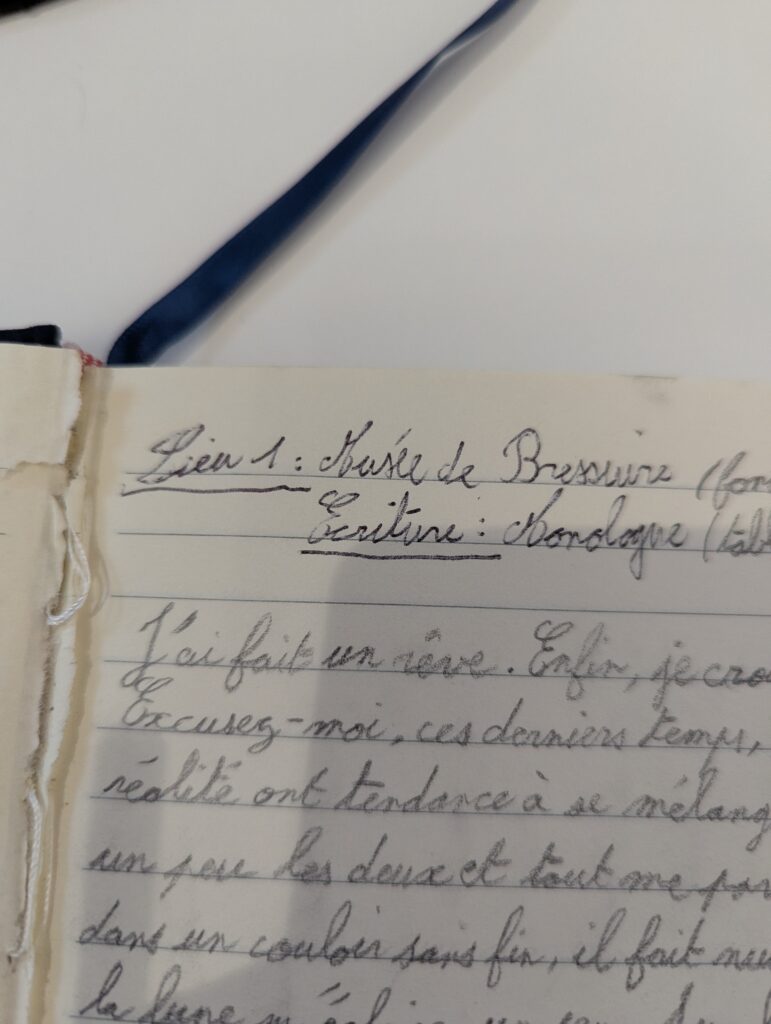 Lieu 1 : Musée de Bressuire (fon
Ecriture : Monologue (tabl
J'ai fait un rêve. Enfin, je croi
Excusez-moi, ces derniers temps,
réalité ont tendance à se mélang
un peu les deux et tout me par
dans un couloir sans fin, il fait nui
la lune m'éclaire un